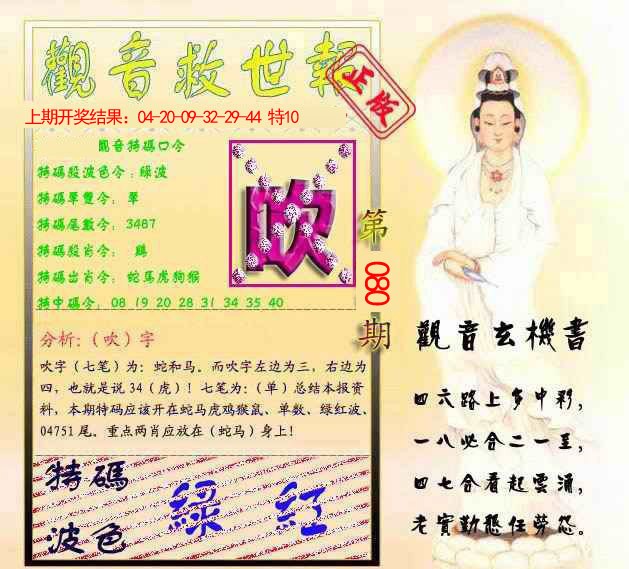 觀音救世報
正版
上期开奖结果：04-20-09-32-29-44 特10
觀音特碼口令
特碼殺波色令：綠波
特碼單雙令： 單
特碼尾數令：3487
特碼殺肖令： 鷄
特碼出肖令：蛇馬虎狗猴
特中碼令：08 19 20 28 31 34 35 40
吹
第
080
期
分析：（吹）字
吹字（七笔）为：蛇和马。而吹字左边为三，右边为
四，也就是说34（虎）！七笔为：（单）总结本报资
料，本期特码应该开在蛇马虎鸡猴鼠、单数、绿红波、
04751尾。重点两肖应放在（蛇马）身上！
特碼
波色
綠 紅
觀音玄機書
四六路上多中彩，
一八必合二一至，
四七合看起雲涌，
老實勤懇任勞怨。